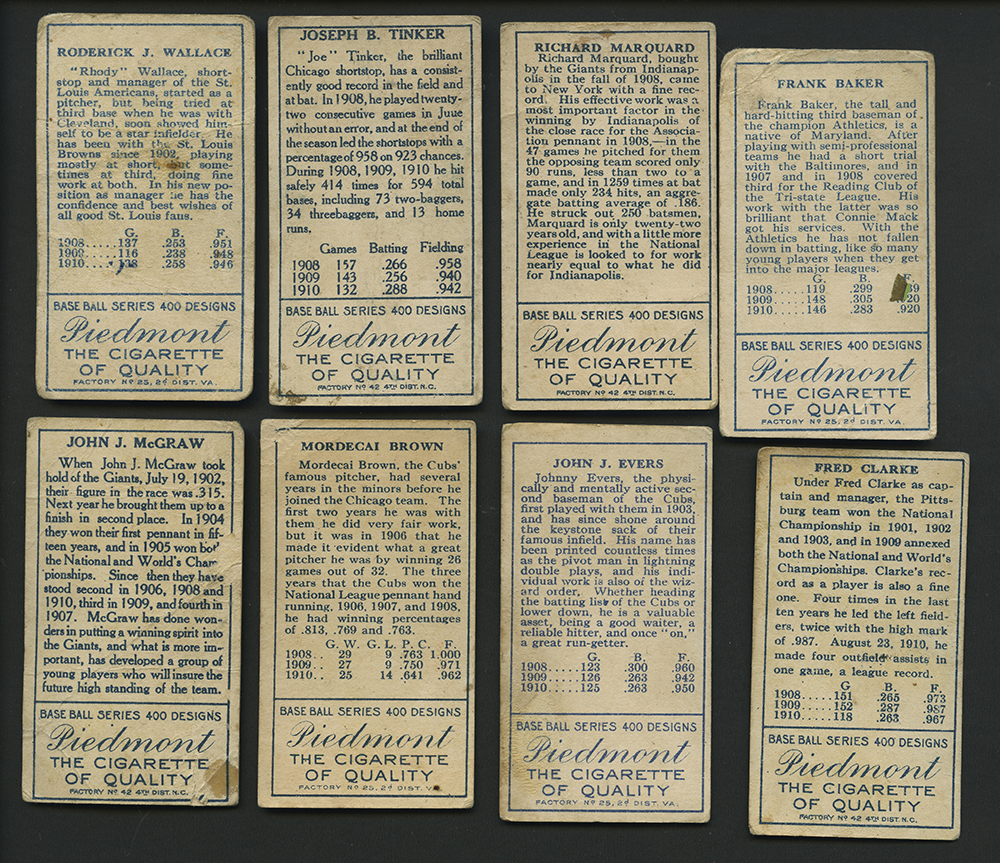 RODERICK J. WALLACE
"Rhody" Wallace, short-
stop and manager of the St.
Louis Americans, started as a
pitcher, but being tried at
third base when he was with
Cleveland, soon showed him-
self to be a star infielder. He
has been with the St. Louis
Browns since 1902, playing
mostly at short, but some-
times at third, doing fine
work at both. In his new po-
sition as manager he has the
confidence and best wishes of
all good St. Louis fans.
G. B. F.
1908.....137 .253 .951
1909.....116 .238 .948
1910..... .258 .946
BASE BALL SERIES 400 DESIGNS
Piedmont
THE CIGARETTE
OF QUALITY
FACTORY Nº 25, 2d DIST. VA.
JOSEPH B. TINKER
"Joe" Tinker, the brilliant
Chicago shortstop, has a consist-
ently good record in the field and
at bat. In 1908, he played twenty-
two consecutive games in Juue
without an error, and at the end of
the season led the shortstops with a
percentage of 958 on 923 chances.
During 1908, 1909, 1910 he hit
safely 414 times for 594 total
bases, including 73 two-baggers,
34 threebaggers, and 13 home
runs.
Games Batting Fielding
1908 157 .266 .958
1909 143 .256 .940
1910 132 .288 .942
BASE BALL SERIES 400 DESIGNS
Piedmont
THE CIGARETTE
OF QUALITY
FACTORY Nº 42 4TH DIST. N.C.
RICHARD MARQUARD
Richard Marquard, bought
by the Giants from Indianap-
olis in the fall of 1908, came
to New York with a fine rec-
ord. His effective work was a
most important factor in the
winning by Indianapolis of
the close race for the Associa-
tion pennant in 1908,—in the
47 games he pitched for them
the opposing team scored only
90 runs, less than two to a
game, and in 1259 times at bat
made only 234 hits, an aggre-
gate batting average of .186.
He struck out 250 batsmen,
Marquard is only twenty-two
years old, and with a little more
experience in the National
League is looked to for work
nearly equal to what he did
for Indianapolis.
BASE BALL SERIES 400 DESIGNS
Piedmont
THE CIGARETTE
OF QUALITY
FACTORY Nº 42 4TH DIST. N.C.
FRANK BAKER
Frank Baker, the tall and
hard-hitting third baseman of
the champion Athletics, is a
native of Maryland. After
playing with semi-professional
teams he had a short trial
with the Baltimores, and in
1907 and in 1908 covered
third for the Reading Club of
the Tri-state League. His
work with the latter was so
brilliant that Connie Mack
got his services. With the
Athletics he has not fallen
down in batting, like so many
young players when they get
into the major leagues.
G. B. F.
1908.....119 .299 39
1909.....148 .305 .920
1910.....146 .283 .920
BASE BALL SERIES 400 DESIGNS
Piedmont
THE CIGARETTE
OF QUALITY
FACTORY Nº 25, 2d DIST. VA.
JOHN J. McGRAW
When John J. McGraw took
hold of the Giants, July 19, 1902,
their figure in the race was .315.
Next year he brought them up to a
finish in second place. In 1904
they won their first pennant in fif-
teen years, and in 1905 won bot'
the National and World's Cham
pionships. Since then they have
stood second in 1906, 1908 and
1910, third in 1909, and fourth in
1907. McGraw has done won-
ders in putting a winning spirit into
the Giants, and what is more im-
portant, has developed a group of
young players who will insure the
future high standing of the team.
BASE BALL SERIES 400 DESIGNS
Piedmont
THE CIGARETTE
OF QUALITY
FACTORY Nº 42 4TH DIST. N.C.
MORDECAI BROWN
Mordecai Brown, the Cubs'
famous pitcher, had several
years in the minors before he
joined the Chicago team. The
first two years he was with
them he did very fair work,
but it was in 1906 that he
made it evident what a great
pitcher he was by winning 26
games out of 32. The three
years that the Cubs won the
National League pennant hand
running, 1906, 1907, and 1908,
he had winning percentages
of .813, .769 and .763.
G. W. G. L. P. C. F.
1908.. 29 9 .763 1.000
1909.. 27 9 .750 .971
1910.. 25 14 .641 .962
BASE BALL SERIES 400 DESIGNS
Piedmont
THE CIGARETTE
OF QUALITY
FACTORY Nº 25, 2d DIST. VA.
JOHN J. EVERS
Johnny Evers, the physi-
cally and mentally active sec-
ond baseman of the Cubs,
first played with them in 1903,
and has since shone around
the keystone sack of their
famous infield. His name has
been printed countless times
as the pivot man in lightning
double plays, and his indi-
vidual work is also of the wiz-
ard order. Whether heading
the batting list of the Cubs or
lower down, he is a valuable
asset, being a good waiter, a
reliable hitter, and once "on,"
a great run-getter.
G. B. F.
1908.....123 .300 .960
1909.....126 .263 .942
1910.....125 .263 .950
BASE BALL SERIES 400 DESIGNS
Piedmont
THE CIGARETTE
OF QUALITY
FACTORY Nº 25, 2d DIST. VA.
FRED CLARKE
Under Fred Clarke as cap-
tain and manager, the Pitts-
burg team won the National
Championship in 1901, 1902
and 1903, and in 1909 annexed
both the National and World's
Championships. Clarke's rec-
ord as a player is also a fine
one. Four times in the last
ten years he led the left field-
ers, twice with the high mark
of .987. August 23, 1910, he
made four outfield assists in
one game, a league record.
G B. F.
1908.....151 .265 .973
1909.....152 .287 .987
1910.....118 .263 .967
BASE BALL SERIES 400 DESIGNS
Piedmont
THE CIGARETTE
OF QUALITY
FACTORY Nº 42 4TH DIST. N.C.